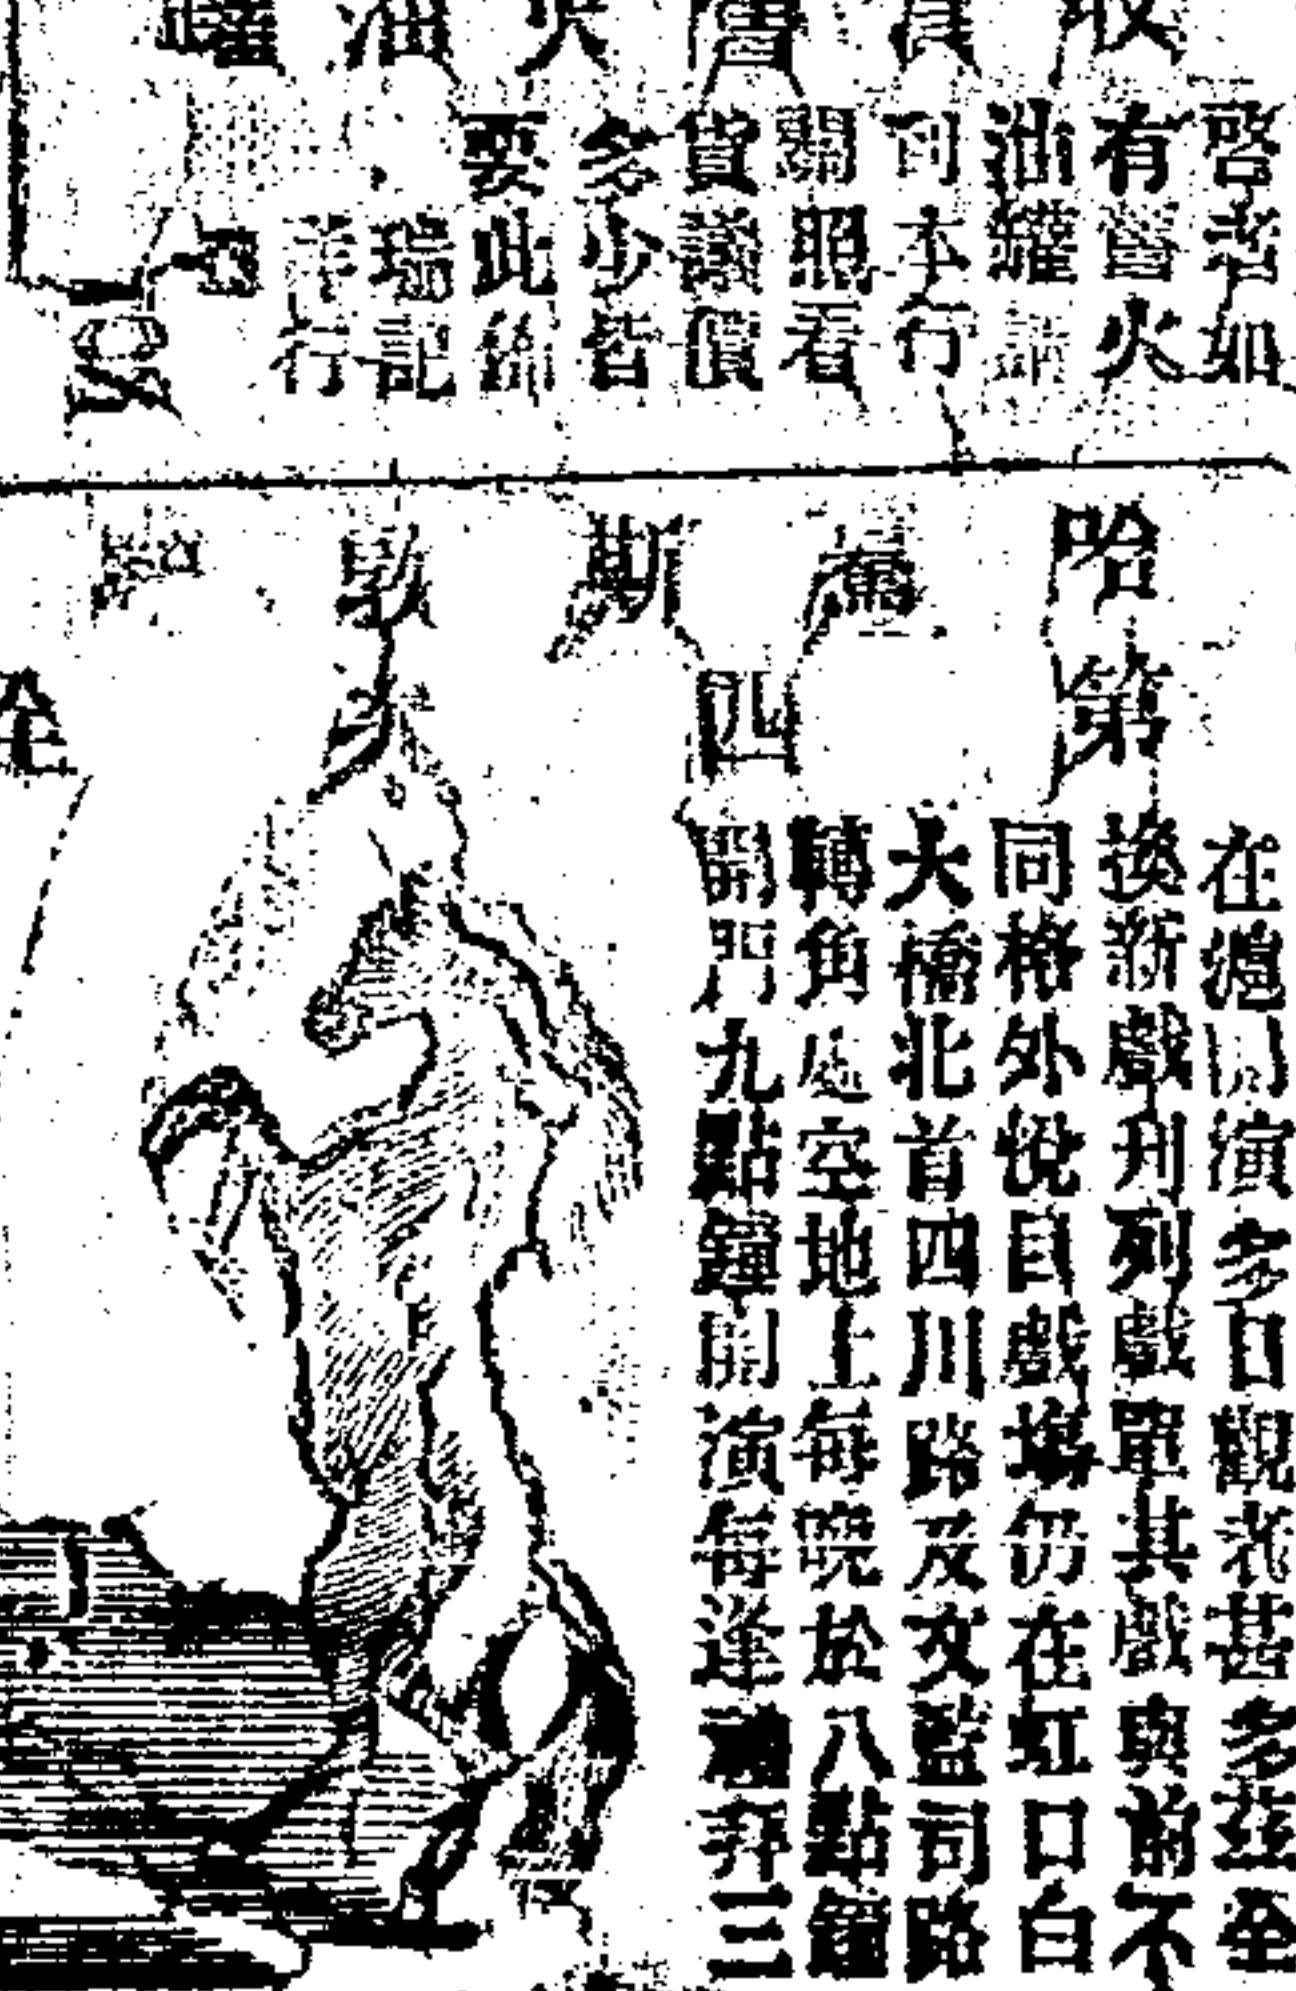 收買舊火油罐
啓者如
有舊火
油罐請
司本行
關照看
貨議價
多少皆
要此佈
瑞記
洋行
哈斯
第四
次
全
在滬開演多日觀者甚多茲全
換新戲刊列戲單其戲與前不
同格外悅目戲場仍在虹口白
大橋北首四川路及文監司路
轉角處空地上每晚於八點鐘
開門九點鐘開演每逢禮拜三